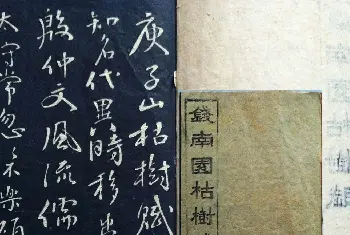 庾子山枯樹賦
知名代異時移出
殷仲文風流儒
太守常忽忽不樂顧
錢南園枯樹